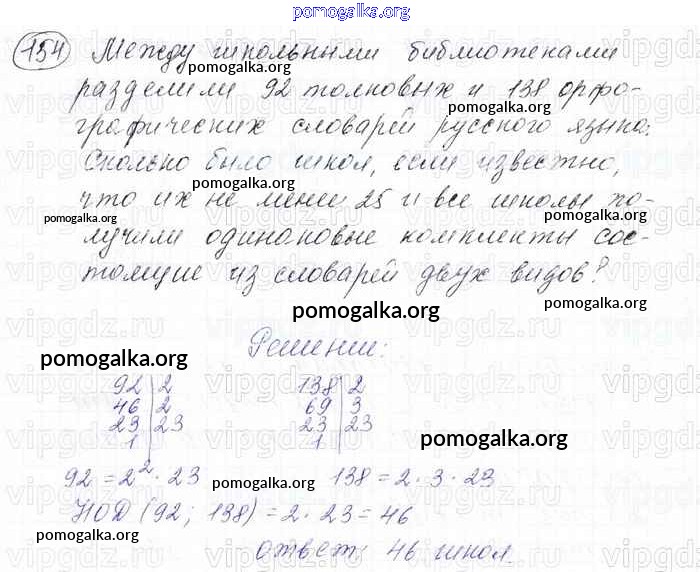 pomogalka.org
154 Между школьными библиотеками
pomogalka.org
разделили 92 толковых и 138 орфо-
pomogalka.org
графических словарей русского языка.
Сколько было школ, если известно,
pomogalka.org
что их не менее 25 и все школы по-
pomogalka.org pomogalka.org
лучили одинаковые комплекты сос-
тоящие из словарей двух видов?
pomogalka.org pomogalka.org
Решение:
pomogalka.org
92 | 2 138 | 2
46 | 2 69 | 3
23 | 23 23 | 23
1 | 1 |
pomogalka.org
92 = 2² · 23 138 = 2 · 3 · 23
pomogalka.org
НОД (92; 138) = 2 · 23 = 46
pomogalka.org
ответ: 46 школ.
vipgdz.ru